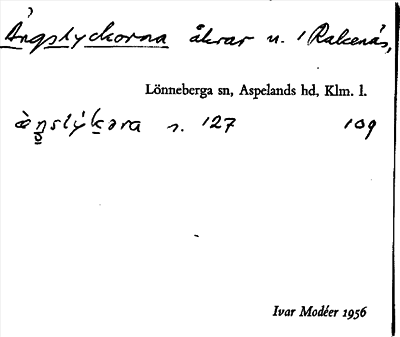 Ängslyckorna åkrar n. 1 Rakenäs,
Lönneberga sn, Aspelands hd, Klm. l.
s. 127 109
Ivar Modéer 1956